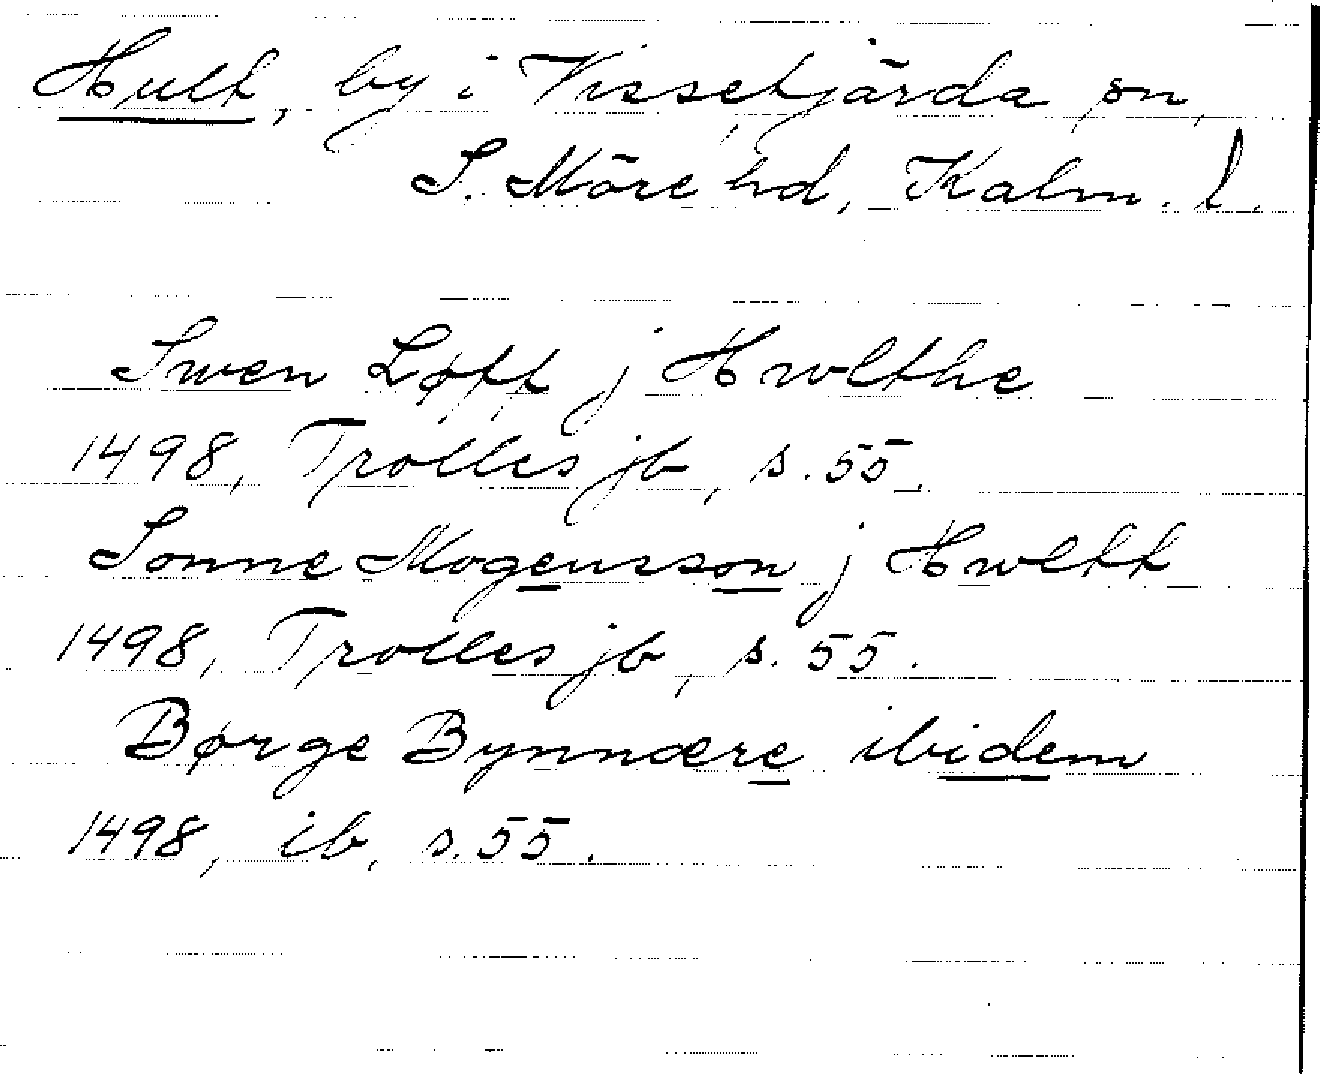 Hult, by i Vissefjärda sn,
S. Möre hd, Kalm. l.
Swen Løtt j Hwlthe
1498, Trolles jb, s. 55.
Sonne Mogensson j Hwltt
1498, Trolles jb, s. 55.
Børge Bynnære ibidem
1498, ib, s. 55.